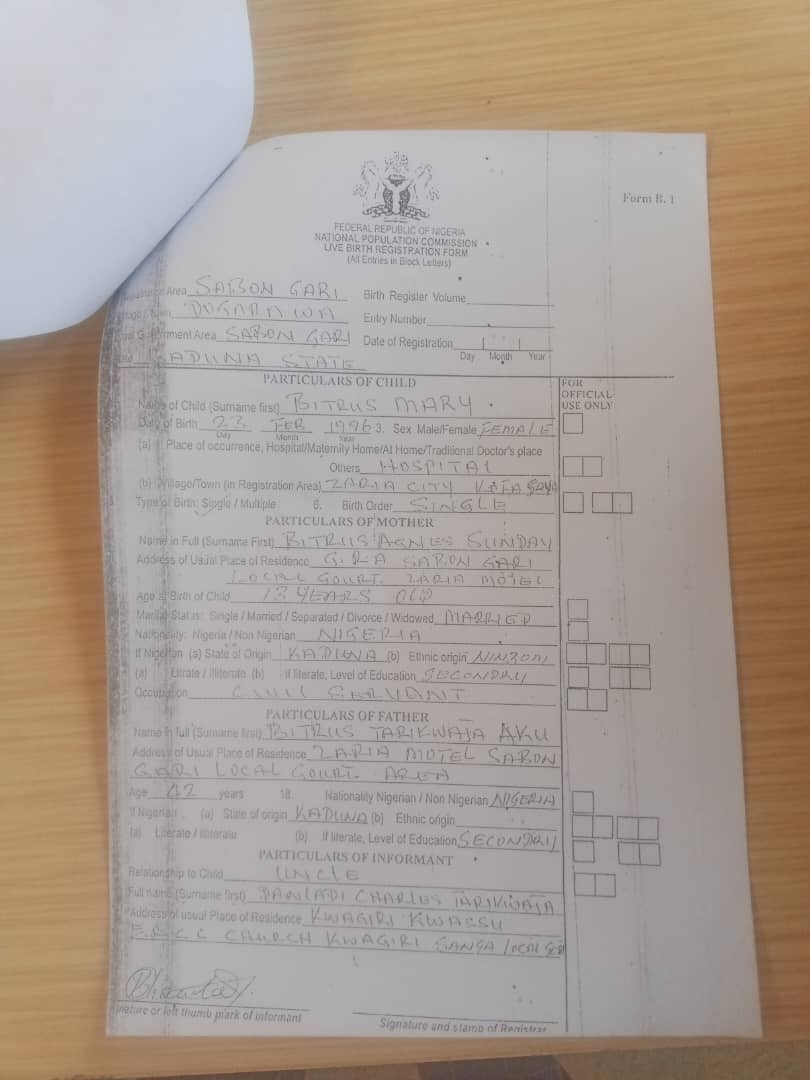 Form B. 1
FEDERAL REPUBLIC OF NIGERIA
NATIONAL POPULATION COMMISSION
LIVE BIRTH REGISTRATION FORM
(All Entries in Block Letters)
Area SABON GARI Birth Register Volume
DOGARAWA Entry Number
Government Area SABON GARI Date of Registration
Day Month Year
KADUNA STATE
PARTICULARS OF CHILD
FOR OFFICIAL USE ONLY
Name of Child (Surname first) BITRUS MARY
Date of Birth 23 FEB 1996 3. Sex Male/Female FEMALE
Day Month Year
(a) Place of occurrence, Hospital/Maternity Home/At Home/Traditional Doctor's place
Others HOSPITAL
(b) Village/Town (in Registration Area) ZARIA CITY
Type of Birth: Single / Multiple 6. Birth Order SINGLE
PARTICULARS OF MOTHER
Name in Full (Surname First) BITRUS AGNES SUNDAY
Address of Usual Place of Residence G.R.A SABON GARI
LOCAL GOURT. ZARIA MOTEL
Age at Birth of Child 13 YEARS OLD
Marital Status: Single / Married / Separated / Divorce / Widowed MARRIED
Nationality: Nigeria / Non Nigerian NIGERIA
If Nigerian (a) State of Origin KADUNA (b) Ethnic origin
(a) Litrate / Illiterate (b) if literate, Level of Education SECONDRY
Occupation CIVIL SERVANT
PARTICULARS OF FATHER
Name in full (Surname first) BITRUS TARIKWAJA AKU
Address of Usual Place of Residence ZARIA MOTEL SABON
GARI LOCAL GOURT. AREA
Age 42 years 18. Nationality Nigerian / Non Nigerian NIGERIA
If Nigerian (a) State of origin KADUNA (b) Ethnic origin
(a) Literate / Illiterate (b) If literate, Level of Education SECONDRY
PARTICULARS OF INFORMANT
Relationship to Child UNCLE
Full name (Surname first) DANLADI CHARLES TARIKWAJA
Address of usual Place of Residence KWAGIRI KWASSU
E.R.C.C CHURCH KWAGIRI SANGA LOCAL
Signature or left thumb mark of informant
Signature and stamp of Registrar